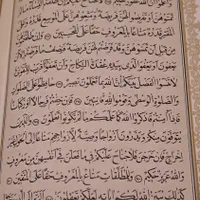 أَنَّ اللَّهَ غَفُورٌ حَلِيمٌ
تَمَسُّوهُنَّ أَوْ تَفْرِضُوا لَهُنَّ فَرِيضَةً وَمَتِّعُوهُنَّ عَلَى الْمُوسِعِ قَدَرُهُ وَعَلَى
الْمُقْتِرِ قَدَرُهُ مَتَاعًا بِالْمَعْرُوفِ حَقًّا عَلَى الْمُحْسِنِينَ وَإِنْ طَلَّقْتُمُوهُنَّ
مِنْ قَبْلِ أَنْ تَمَسُّوهُنَّ وَقَدْ فَرَضْتُمْ لَهُنَّ فَرِيضَةً فَنِصْفُ مَا فَرَضْتُمْ إِلَّا أَنْ
يَعْفُونَ أَوْ يَعْفُوَ الَّذِي بِيَدِهِ عُقْدَةُ النِّكَاحِ وَأَنْ تَعْفُوا أَقْرَبُ لِلتَّقْوَى وَ
لَا تَنْسَوُا الْفَضْلَ بَيْنَكُمْ إِنَّ اللَّهَ بِمَا تَعْمَلُونَ بَصِيرٌ حَافِظُوا عَلَى الصَّلَوَاتِ
وَالصَّلَاةِ الْوُسْطَى وَقُومُوا لِلَّهِ قَانِتِينَ فَإِنْ خِفْتُمْ فَرِجَالًا أَوْ رُكْبَانًا
فَإِذَا أَمِنْتُمْ فَاذْكُرُوا اللَّهَ كَمَا عَلَّمَكُمْ مَا لَمْ تَكُونُوا تَعْلَمُونَ وَالَّذِينَ
يُتَوَفَّوْنَ مِنْكُمْ وَيَذَرُونَ أَزْوَاجًا وَصِيَّةً لِأَزْوَاجِهِمْ مَتَاعًا إِلَى الْحَوْلِ غَيْرَ
إِخْرَاجٍ فَإِنْ خَرَجْنَ فَلَا جُنَاحَ عَلَيْكُمْ فِي مَا فَعَلْنَ فِي أَنْفُسِهِنَّ مِنْ مَعْرُوفٍ
وَاللَّهُ عَزِيزٌ حَكِيمٌ وَلِلْمُطَلَّقَاتِ مَتَاعٌ بِالْمَعْرُوفِ حَقًّا عَلَى الْمُتَّقِينَ
كَذَلِكَ يُبَيِّنُ اللَّهُ لَكُمْ آيَاتِهِ لَعَلَّكُمْ تَعْقِلُونَ أَلَمْ تَرَ إِلَى الَّذِينَ